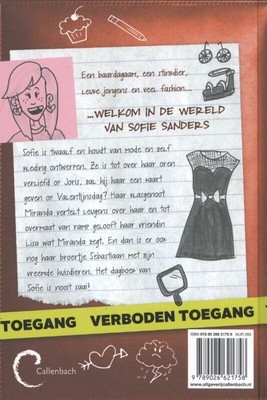 Een baardagaam, een stinkdier,
leuke jongens en veel fashion...
...WELKOM IN DE WERELD
VAN SOFIE SANDERS
Sofie is twaalf en houdt van mode en zelf
kleding ontwerpen. Ze is tot over haar oren
verliefd op Joris, zal hij haar een kaart
geven op Valentijnsdag? Haar klasgenoot
Miranda vertelt leugens over haar en tot
overmaat van ramp gelooft haar vriendin
Lisa wat Miranda zegt. En dan is er ook
nog haar broertje Sebastiaan met zijn
vreemde huisdieren. Het dagboek van
Sofie is nooit saai!
TOEGANG VERBODEN TOEGANG
Callenbach
9 789026 621758
www.uitgeverijcallenbach.nl